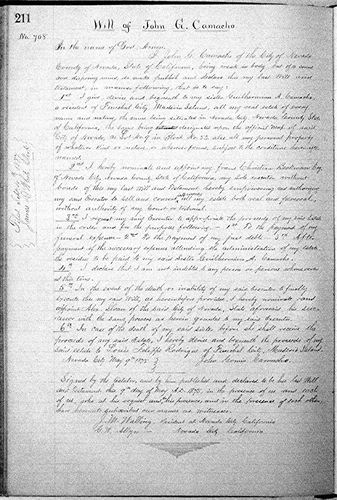 211
Will of John A. Camacho
No. 708
In the name of God Amen.
I John A. Camacho of the City of Nevada
County of Nevada, State of California, being weak in body but of a sane
and disposing mind, do make publish and declare this my last Will and
testament, in manner following, that is to say:
1st I give devise and bequeath to my sister Guilhermina A. Camacho
a resident of Funchal City, Madeira Island, all my real estate of every
name and nature, the same being situated in Nevada City, Nevada County, State
of California, the same being designated upon the official map of said
City of Nevada, as Lot No. of in Block No. 22 also all my personal property
of whatever kind or nature, or wheresoever, subject to the conditions hereinafter
named.
2nd I hereby nominate and appoint my friend Christian
of Nevada City, Nevada County, State of California, my sole executor without
bonds of this my last Will and Testament hereby empowering and authorizing
my said Executor to sell and convey all my estate both real and personal,
without authority of any Court or tribunal.
3rd I request my said Executor to appropriate the proceeds of my said estate
in the order and for the purposes following - 1st To the payment of my
funeral expenses - 2nd To the payment of my just debts - 3rd After
payment of the necessary expenses attending the administration of my estate
the residue to be paid to my said sister Guilhermina A. Camacho.
4th I declare that I am not indebted to any person or persons whomsoever
at this time.
5th In the event of the death or inability of my said executor to faithfully
execute this my said Will, as hereinbefore provided, I hereby nominate and
appoint Alex. of the said City of Nevada, State aforesaid his
with the same powers as herein granted my said Executor.
6th In case of the death of my said sister before she shall receive the
proceeds of my said estate, I hereby devise and bequeath the proceeds of my
said estate to Louis Adolfo Rodrigues of Funchal City, Madeira Island.
Nevada City May 9th 1875
John Camacho.
Signed by the testator, and by him published and declared to be his last Will
and Testament this 9th day of May A.D. 1875, in the presence of us and each
of us, who at his request and in his presence, and in the presence of each other
have hereunto subscribed our names as witnesses.
J. M. Walling, resident at Nevada City California
Nevada City California